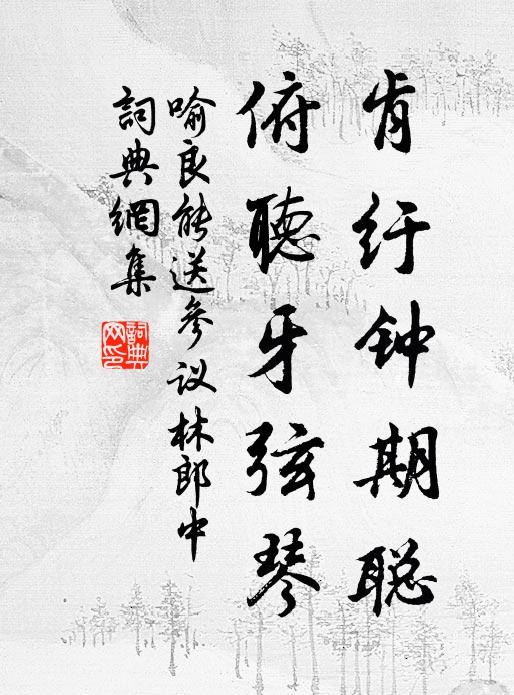 肯纡钟期聪
俯聽牙弦琴
喻良能送參议林郎中
詞典網集
詞典
网印